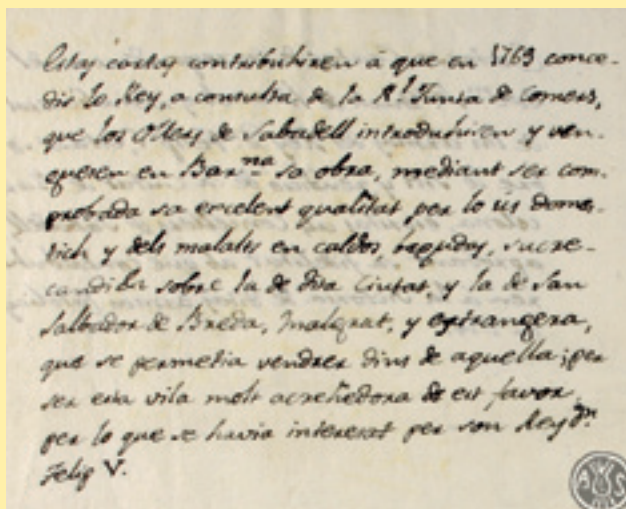 Estas cartas contribuhiren á que en 1769 conce-
dis lo Rey, a consulta de la Rl. Junta de Comers,
que los Ollers de Sabadell introduhiren y ven-
gueren en Barna sa obra, mediant ser com-
probada sa excelent qualitat per lo us domes-
tich y dels malalts en caldos begudas, sucre-
candi &r. sobre la de dita Ciutat y la de San
Salbador de Breda, Malgrat, y extrangera,
que se permetia vendrer dins de aquella; per
ser esta vila molt acrehedora de est favor,
per lo que se havia interesat per son Rey Dn.
Felip V.
AHS